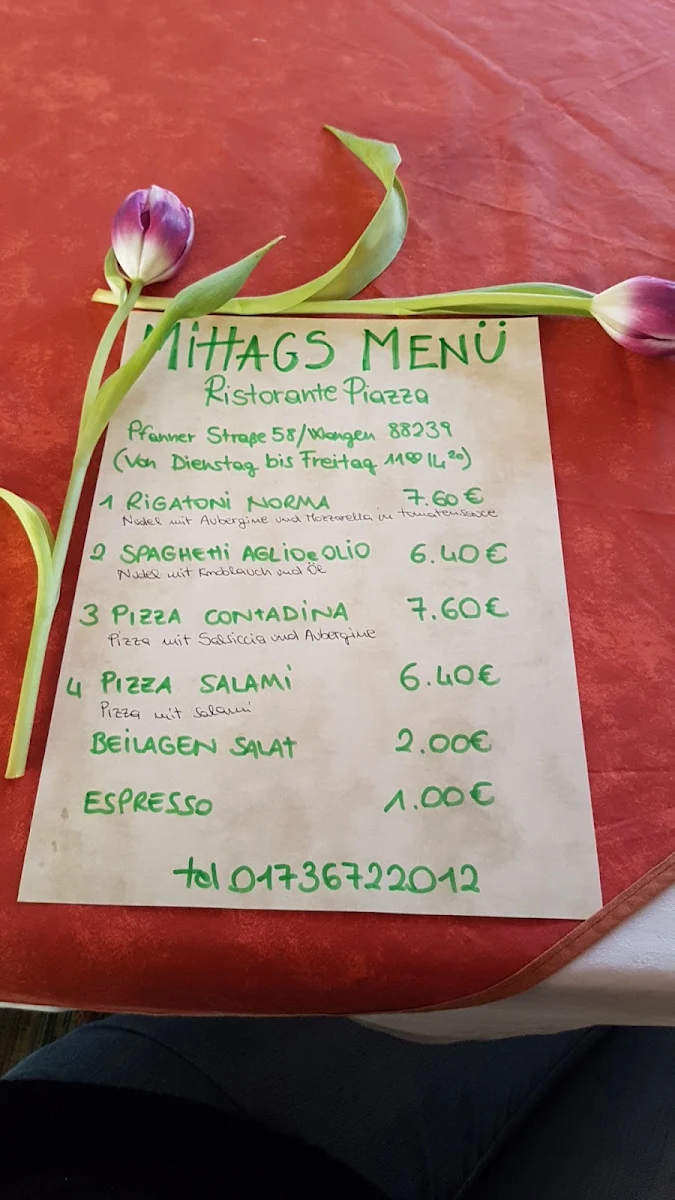 MITTAGS MENÜ
Ristorante Piazza
Pfanner Straße 58/Wangen 88239
(Von Dienstag bis Freitag 11⁰⁰ 14²⁰)
1 RIGATONI NORMA 7.60€
Nudel mit Aubergine und Mozzarella in tomatensauce
2 SPAGHETTI AGLIO e OLIO 6.40€
Nudel mit Knoblauch und Öl
3 PIZZA CONTADINA 7.60€
Pizza mit Salsiccia und Aubergine
4 PIZZA SALAMI 6.40€
Pizza mit Salami
BEILAGEN SALAT 2.00€
ESPRESSO 1.00€
tel 01736722012